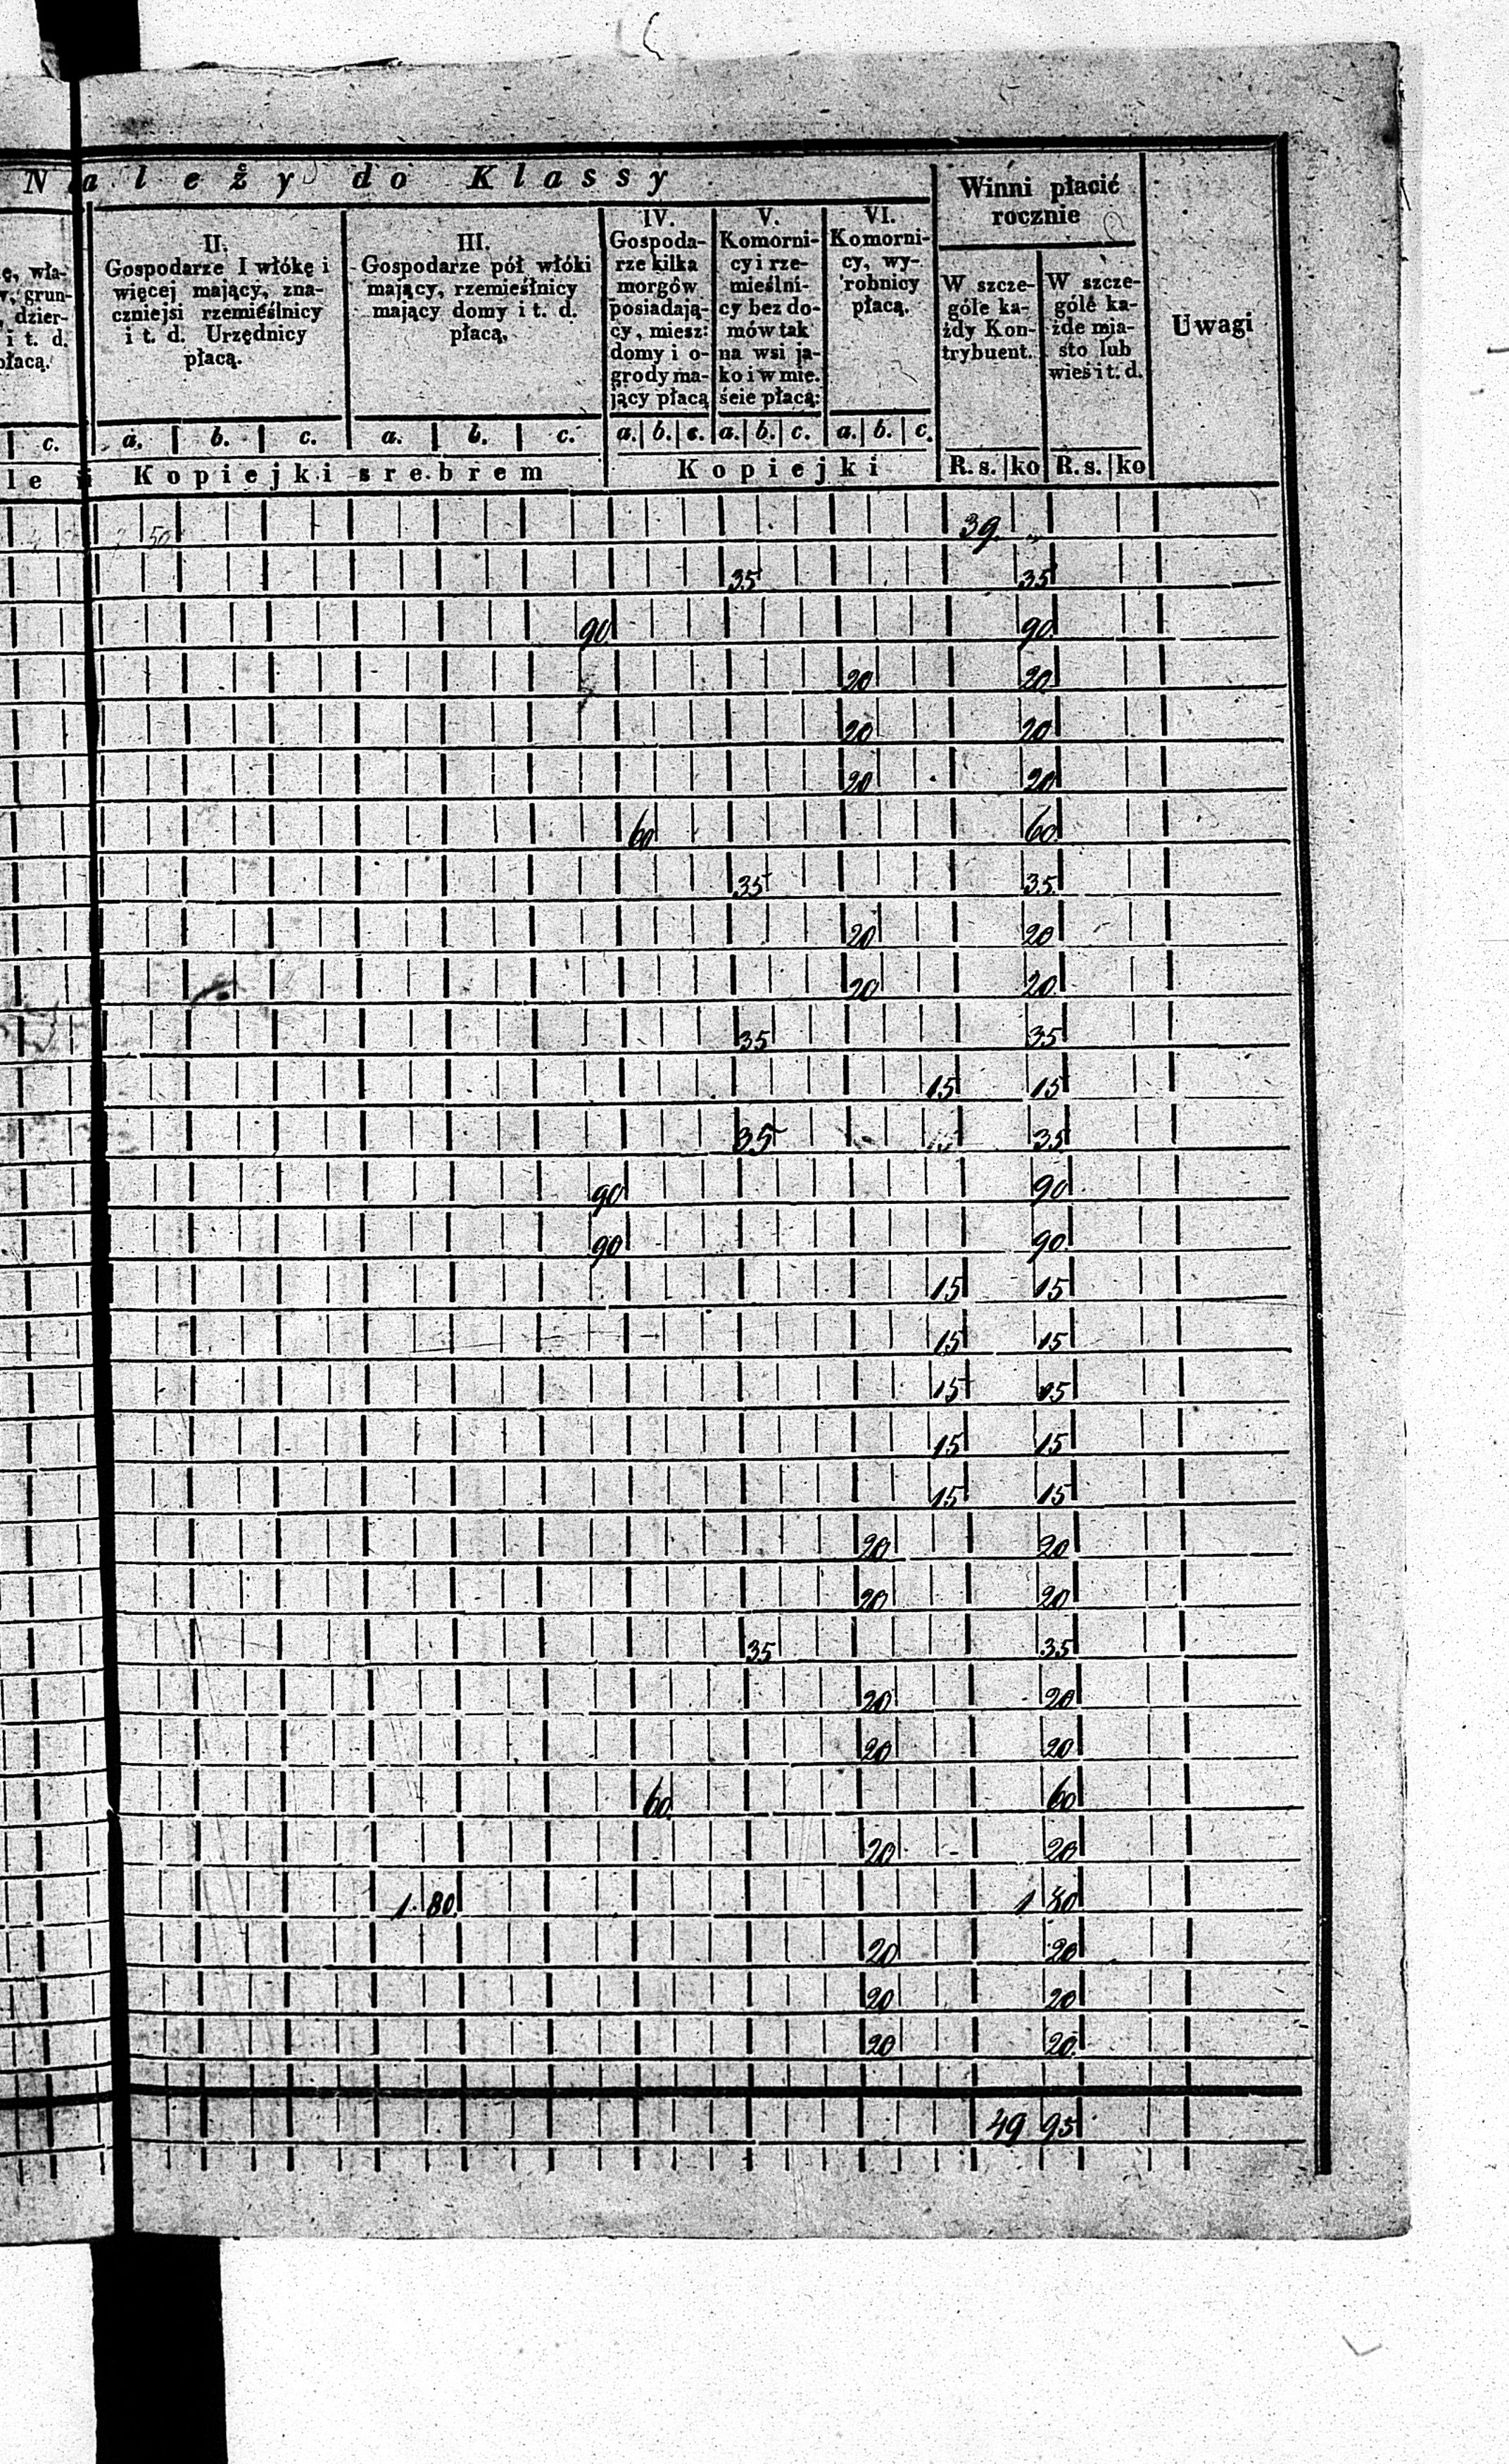 Należy do Klassy
Winni płacić
rocznie
ę, wła-
, grun-
, dzier-
i t. d.
płacą.
II.
Gospodarze I włókę i
więcej mający, zna-
czniejsi rzemieślnicy
i t. d. Urzędnicy
płacą.
III.
Gospodarze pół włóki
mający, rzemieślnicy
mający domy i t. d.
płacą,
IV.
Gospoda-
rze kilka
morgów
posiadają-
cy, miesz:
domy i o-
grody ma-
jący płacą
V.
Komorni-
cy i rze-
mieślni-
cy bez do-
mów tak
na wsi ja-
ko i w mie.
ście płacą:
VI.
Komorni-
cy, wy-
robnicy
płacą.
W szcze-
góle ka-
żdy Kon-
trybuent.
W szcze-
góle ka-
żde mia-
sto lub
wieś i t. d.
Uwagi
c. a. b. c. a. b. c. a. b. c. a. b. c. a. b. c.
le Kopiejki srebrem Kopiejki R. s. ko R. s. ko
50 39 „
35 35
90 90
20 20
20 20
20 20
60 60
35 35
20 20
20 20
35 35
15 15
35 15 35
90 90
90 90
15 15
15 15
15 15
15 15
15 15
20 20
20 20
35 35
20 20
20 20
60 60
20 20
1 80 1 80
20 20
20 20
20 20
49 95